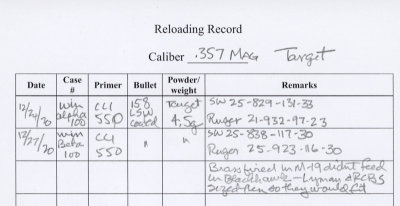 Reloading Record
Caliber .357 MAG Target
Date Case # Primer Bullet Powder/weight Remarks
12/24/20 Win alpha 100 CCI 550 158 LSW coated Target 4.5g SW 25-829-131-33
Ruger 21-932-97-23
12/27/20 Win Beta 100 CCI 550 " " SW 25-838-117-30
Ruger 25-923-116-30
Brass fired in M-19 didn't feed
in Blackhawk - Lyman & RCBS
sized them so they would fit